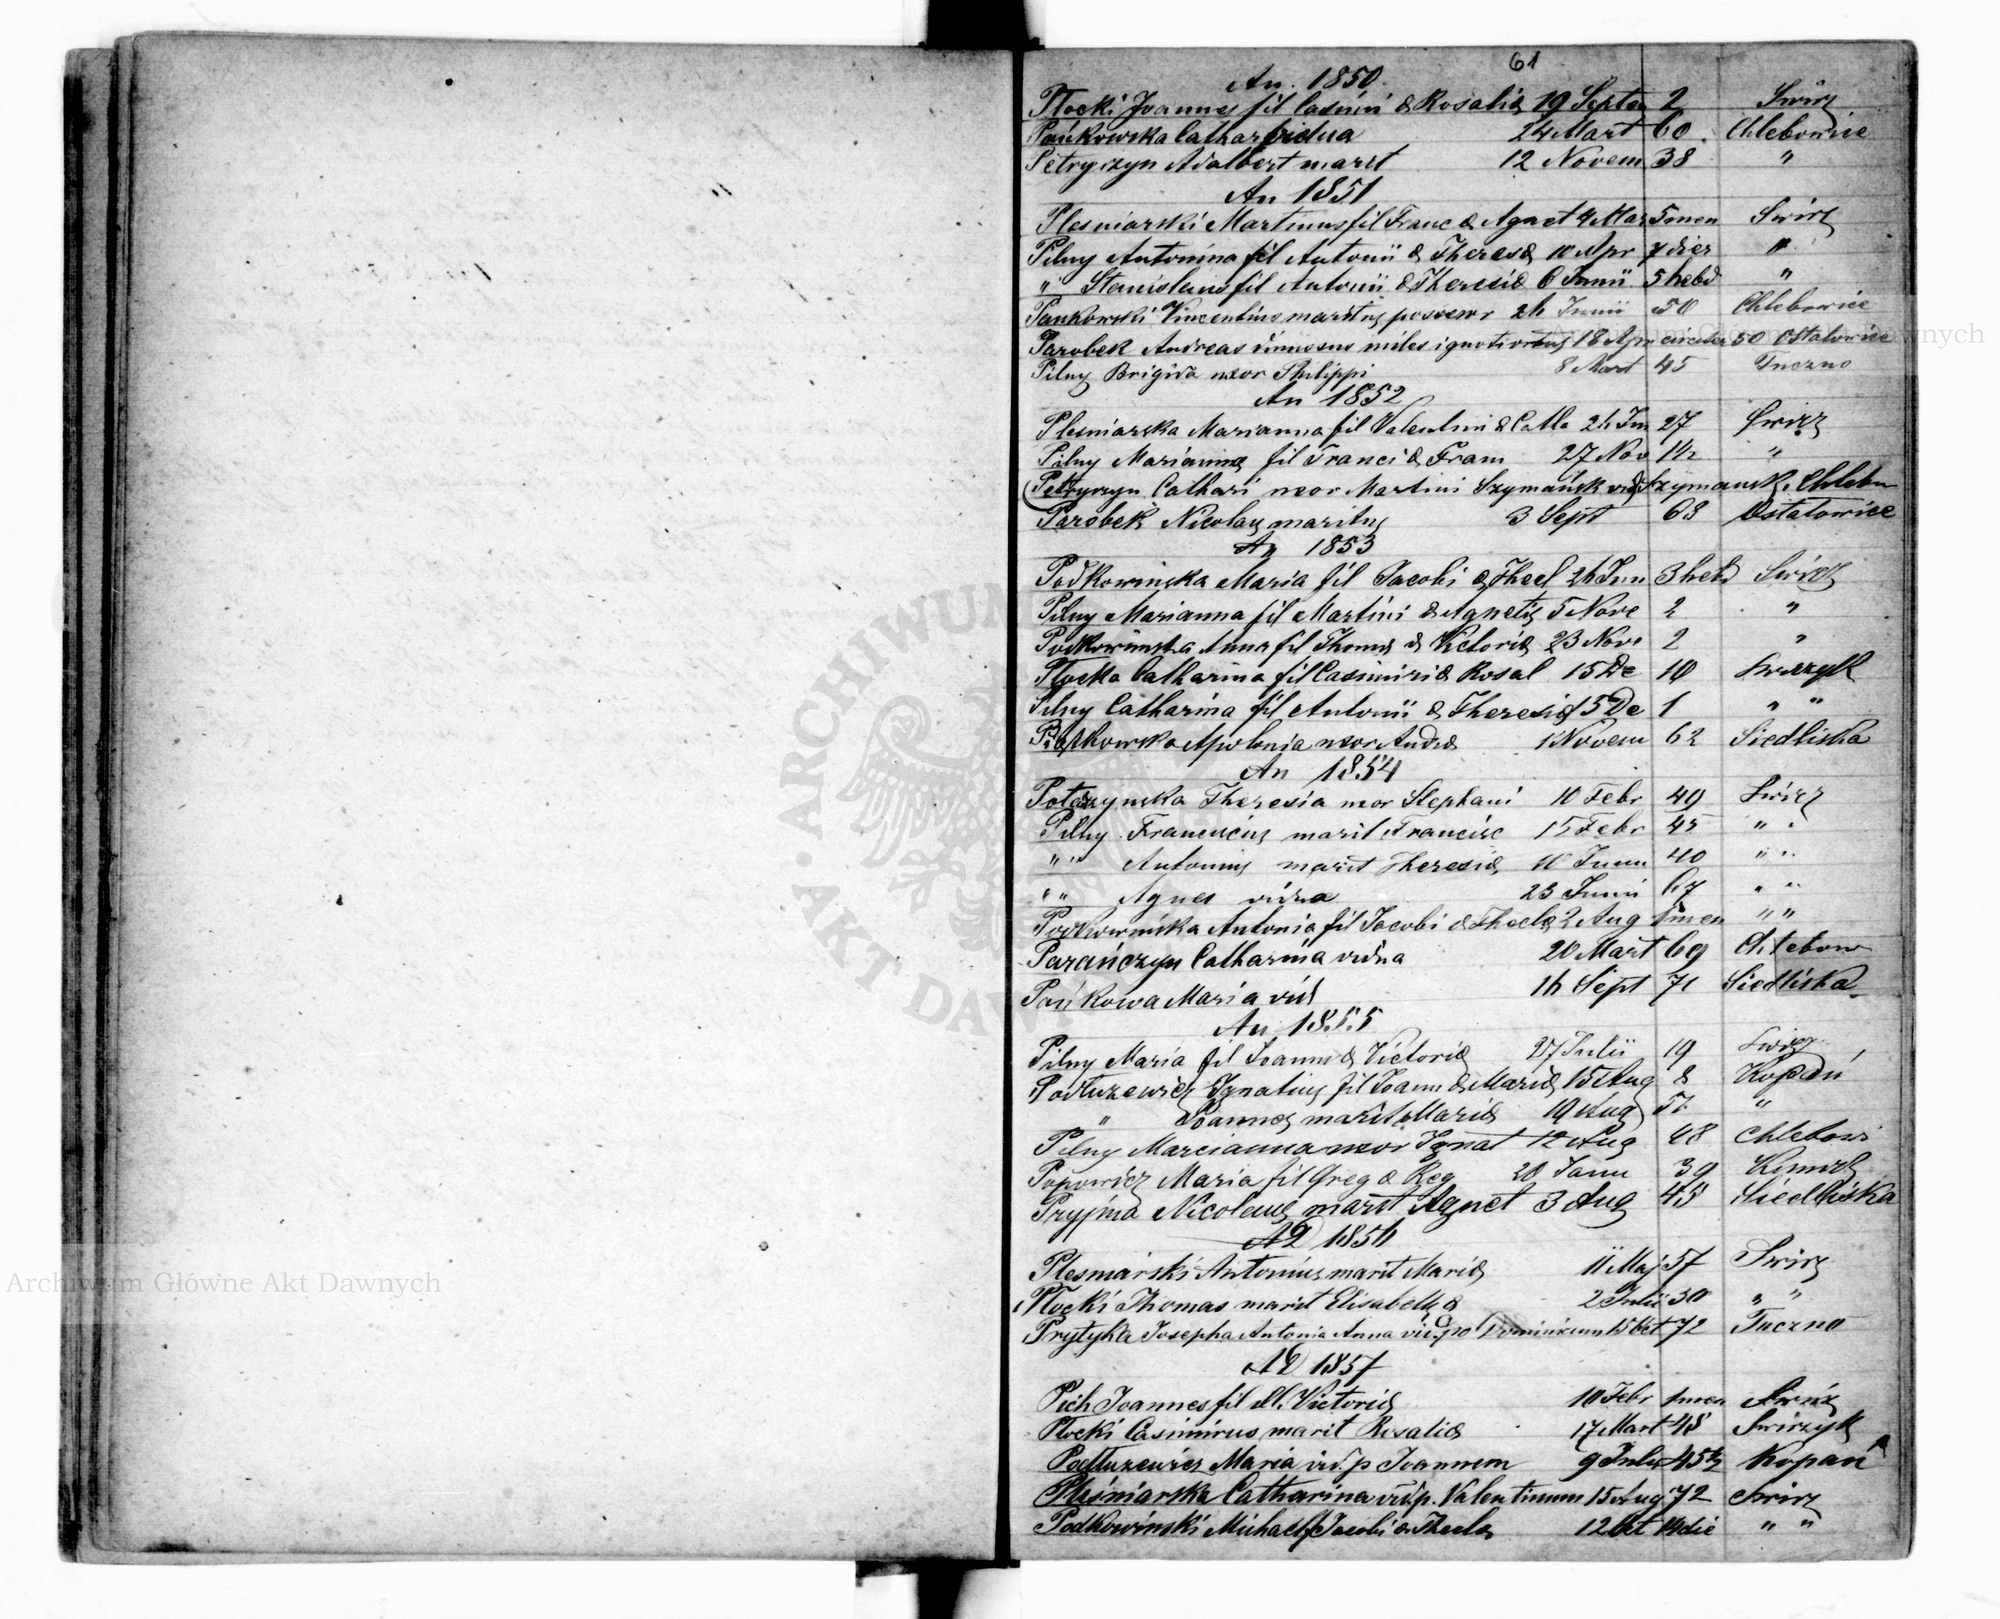 61
An. 1850
Płocki Joannes fil Casimi & Rosaliæ 19 Septem 2 Swirz
Pańkowska Cathar vidua 24 Mart 60 Chlebowice
Petryczyn Adalbert marit 12 Novem 38 "
An 1851
Plesniarski Martinus fil Franc & Agnet 4 Mar 5 men Swirz
Pilny Antonina fil Antonii & Theresæ 10 Apr 7 dier "
" Stanislaus fil Antonii & Theresiæ 6 Junii 5 hebd "
Pankowski Vincentius maritus possessor 24 Junii 50 Chlebowice
Parobek Andreas miles 18 Apr circiter 50 Ostalowice
Pilny Brigida uxor Philippi 8 Mart 45 Tuczno
An 1852
Plesniarska Marianna fil Valentini & Catha 24 Jun 27 Swirz
Pilny Marianna fil Franci & Fran 27 Nov 1½ "
Petryczyn Cathari uxor Martini Szymańsk vide Szymansk. Chlebow
Parobek Nicolaus maritus 3 Sept 68 Ostalowice
An 1853
Podkowinska Maria fil Jacobi & Thecl 24 Jun 3 hebd Swirz
Pilny Marianna fil Martini & Agnetis 5 Nove 2 "
Podkowinska Anna fil Thomæ & Victoriæ 23 Nove 2 "
Płocka Catharina fil Casimiri & Rosal 15 De 10 Swirzyk
Pilny Catharina fil Antonii & Theresiæ 15 De 1 " "
Piątkowska Apolonia uxor Andreæ 1 Novem 62 Siedliska
An 1854
Potoczynska Theresia uxor Stephani 10 Febr 49 Swirz
Pilny Franciscus marit Francisc 15 Febr 45 " "
" " Antonius marit Theresiæ 10 Junii 40 " "
" " Agnes vidua 23 Junii 67 " "
Podkowinska Antonia fil Jacobi & Theclæ 2 Aug 1 men " "
Parańczyn Catharina vidua 20 Mart 69 Chlebow
Pańkowa Maria vid 14 Sept 71 Siedliska
An 1855
Pilny Maria fil Joannis & Victoriæ 27 Julii 19 Swirz
Podłuzewicz Ignatius fil Joann & Mariæ 15 Aug 8 Kopań
" Joannes marit Mariæ 19 Aug 51 "
Pilny Marcianna uxor Ignat 12 Aug 48 Chlebowi
Popowicz Maria fil Greg & Reg 20 Janu 39
Pryjma Nicolaus marit Agnet 3 Aug 45 Siedliska
AD 1856
Plesniarski Antonius marit Mariæ 11 Maj 57 Swirz
Płocki Thomas marit Elisabethæ 2 Julii 30 " "
Prytyka Josepha Antonia Anna vid. po Dominicum 15 Oct 72 Tuczno
AD 1857
Pich Joannes fil ill. Victoriæ 10 Febr 1 men Swirz
Płocki Casimirus marit Rosaliæ 17 Mart 48 Swirzyk
Podłuzewicz Maria vid. p Joannem 9 Julii 45½ Kopań
Pleśniarska Catharina vid p. Valentinum 15 Aug 72 Swirz
Podkowinski Michael f Jacobi & Theclæ 12 Oct 14 die " "
Archiwum Główne Akt Dawnych
Archiwum Główne Akt Dawnych